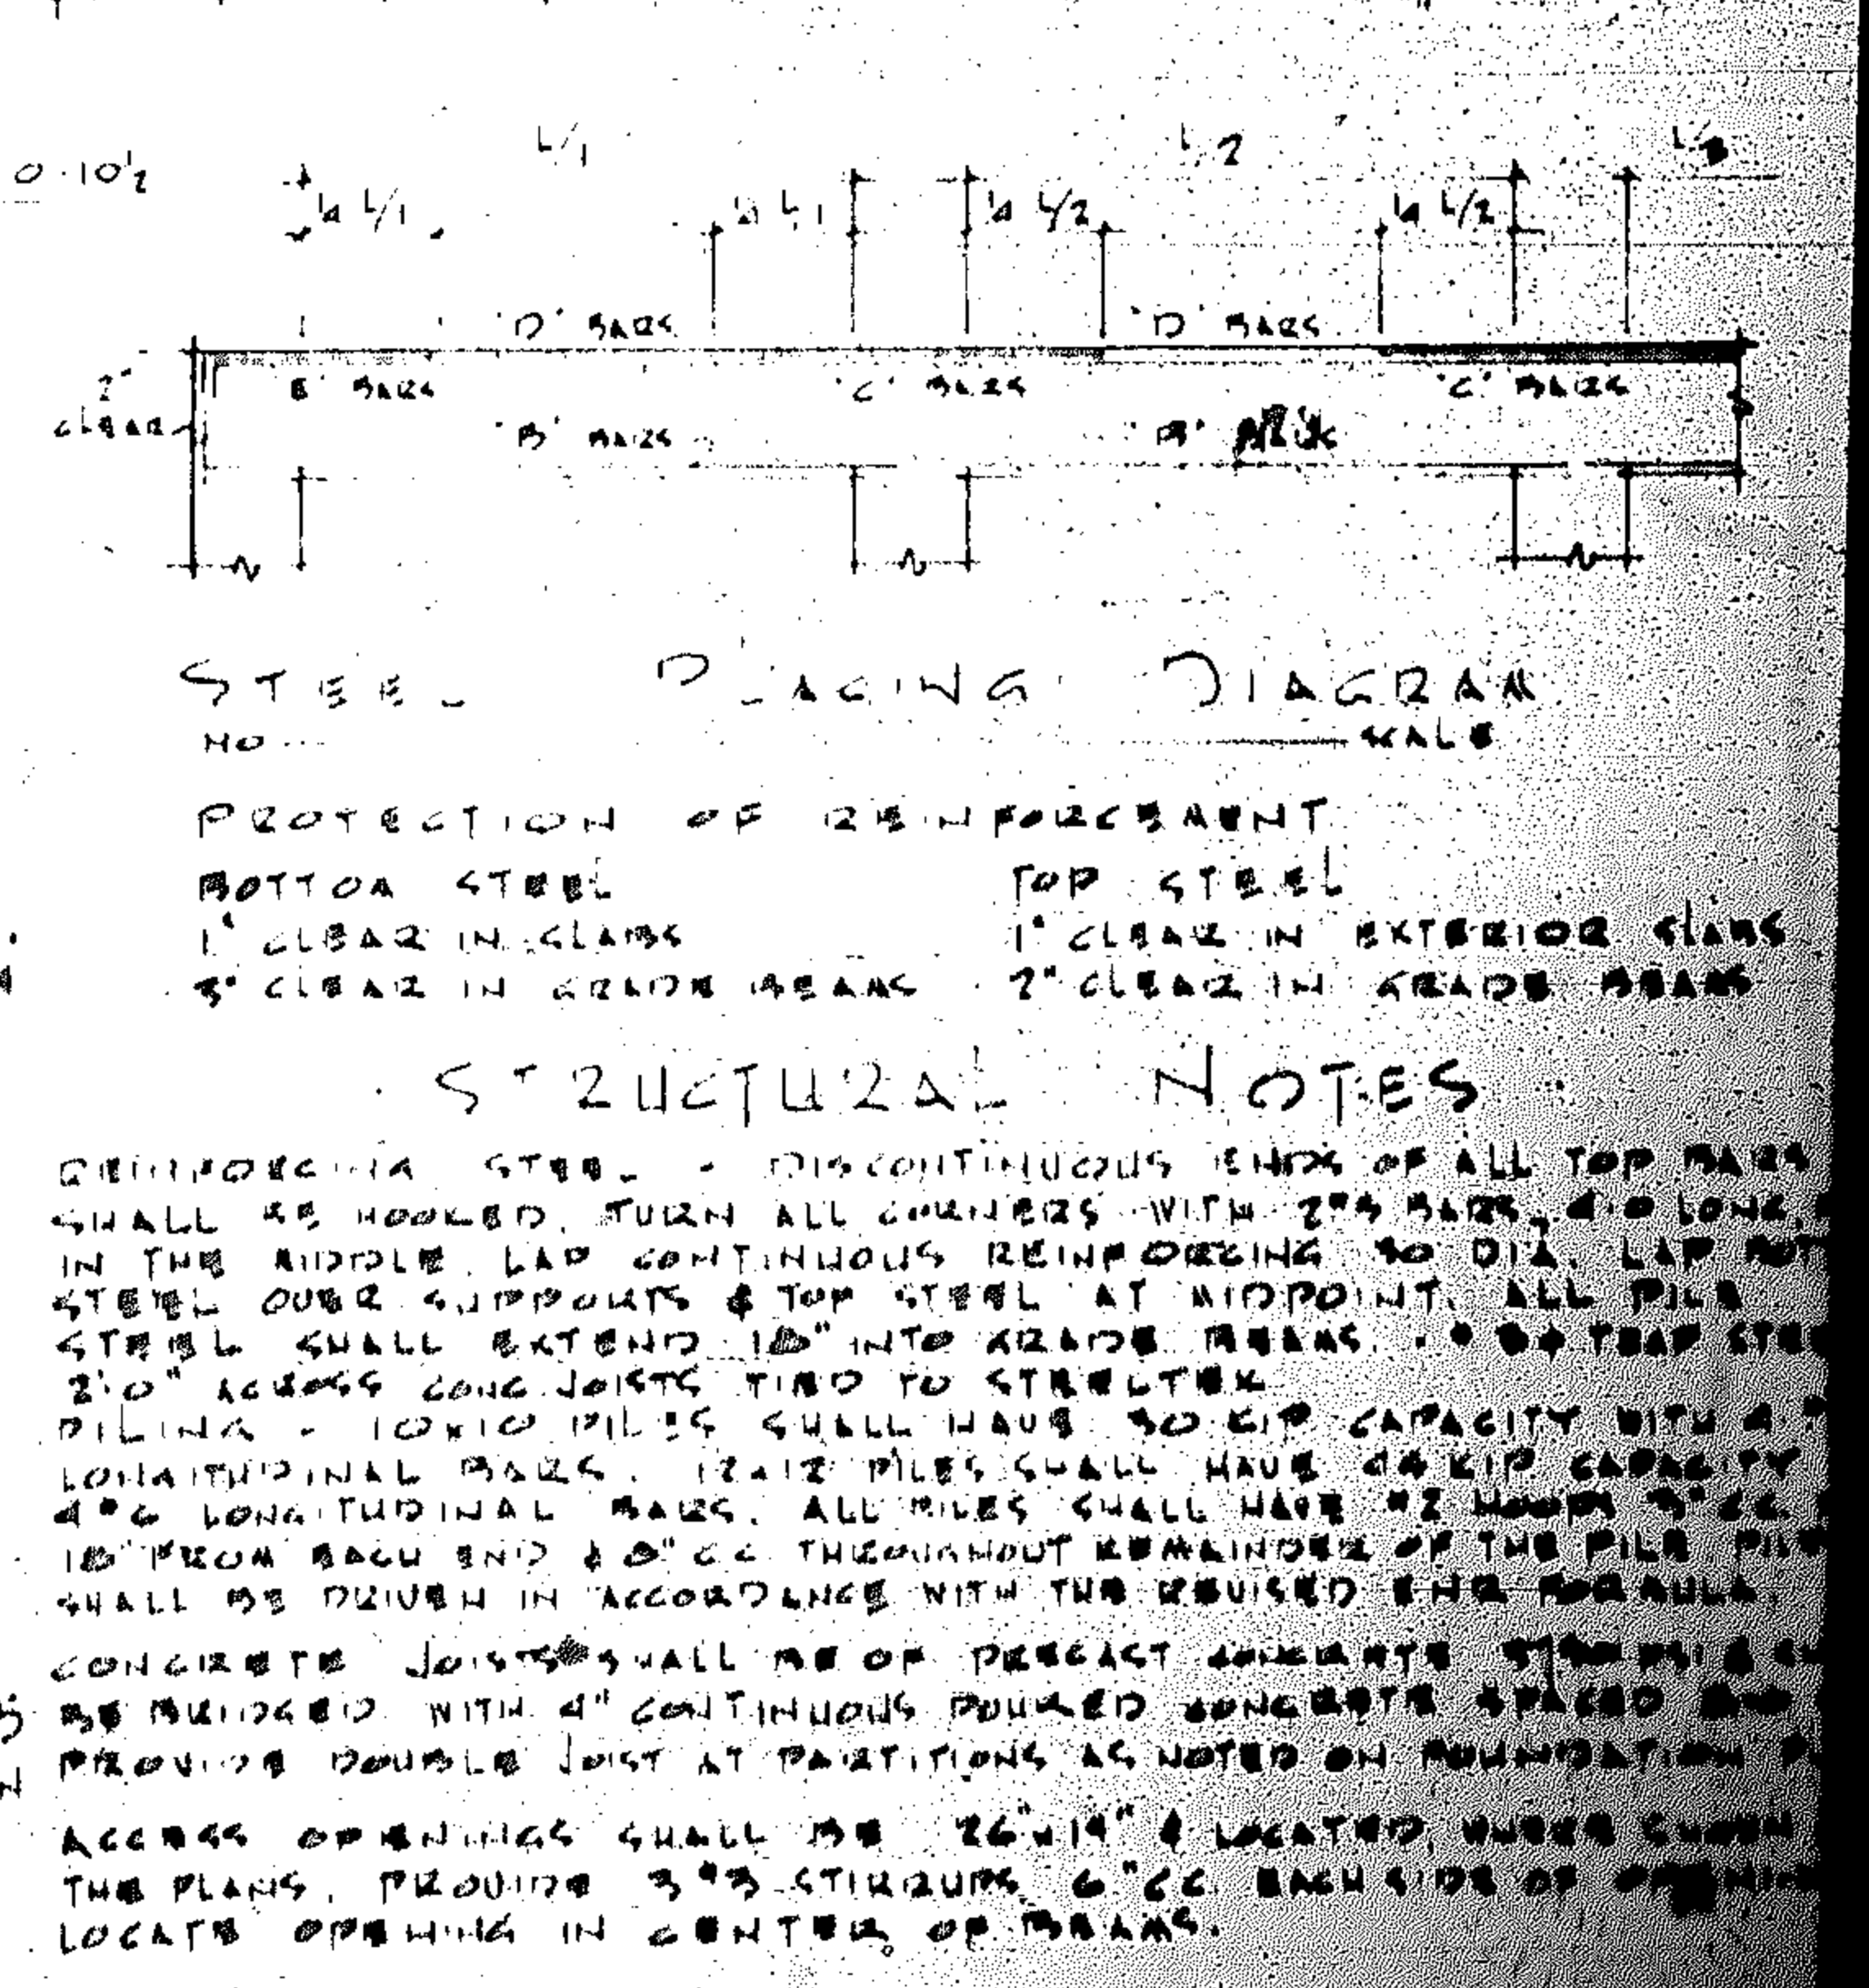 L/1 L/2
0.10½
¼ L/1 ¼ L/1 ¼ L/2 ¼ L/2
'D' BARS 'D' BARS
2" CLEAR
'E' BARS 'C' BARS 'C' BARS
'B' BARS 'B' BARS
STEEL PLACING DIAGRAM
NO SCALE
PROTECTION OF REINFORCEMENT
BOTTOM STEEL TOP STEEL
1" CLEAR IN SLABS 1" CLEAR IN EXTERIOR SLABS
3" CLEAR IN GRADE BEAMS 2" CLEAR IN GRADE BEAMS
STRUCTURAL NOTES
REINFORCING STEEL - DISCONTINUOUS ENDS OF ALL TOP BARS
SHALL BE HOOKED. TURN ALL CORNERS WITH 2 #5 BARS, 4'-0 LONG,
IN THE MIDDLE. LAP CONTINUOUS REINFORCING 30 DIA. LAP
STEEL OVER SUPPORTS & TOP STEEL AT MIDPOINT. ALL PILE
STEEL SHALL EXTEND 18" INTO GRADE BEAMS.
2'0" ACROSS CONC JOISTS TIED TO STEELTEX
PILING - 10x10 PILES SHALL HAVE 30 KIP CAPACITY WITH 4
LONGITUDINAL BARS. 12x12 PILES SHALL HAVE 44 KIP CAPACITY
4 #6 LONGITUDINAL BARS. ALL PILES SHALL HAVE #2 HOOPS 3" CC
18" FROM EACH END & 8" CC THROUGHOUT REMAINDER OF THE PILE
SHALL BE DRIVEN IN ACCORDANCE WITH THE REVISED ENR FORMULA.
CONCRETE JOISTS SHALL BE OF PRECAST CONCRETE
BE BRIDGED WITH 4" CONTINUOUS POURED CONCRETE SPACED
PROVIDE DOUBLE JOIST AT PARTITIONS AS NOTED ON FOUNDATION
ACCESS OPENINGS SHALL BE 26" x 14" & LOCATED, WHERE SHOWN
THE PLANS. PROVIDE 3 #3 STIRRUPS 6" CC. EACH SIDE OF OPENING
LOCATE OPENING IN CENTER OF BEAMS.